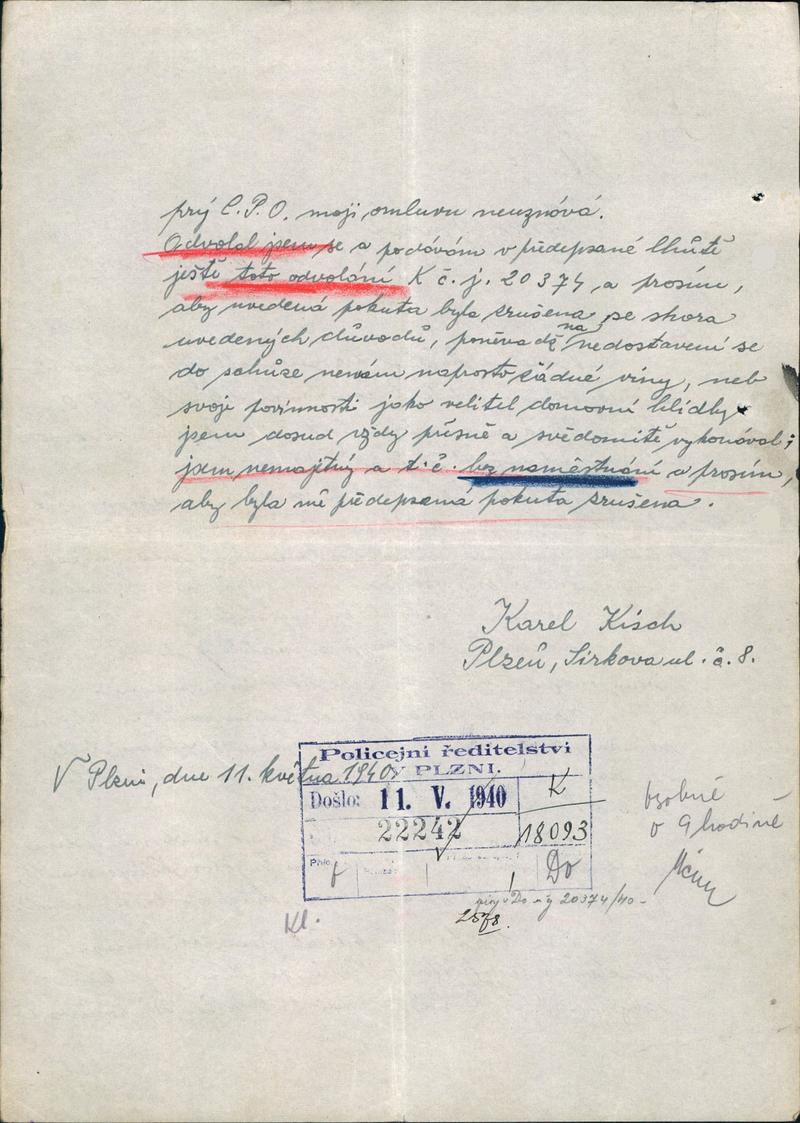 prý C.P.O. moji omluvu neuznává.
Odvolal jsem se a podávám v předepsané lhůtě
ještě toto odvolání K č. j. 20374, a prosím,
aby uvedená pokuta byla zrušena se shora
uvedených důvodů, poněvadž na nedostavení se
do schůze nemám naprosto žádné viny, neb
svoji povinnosti jako velitel domovní hlídky
jsem dosud vždy přesně a svědomitě vykonával;
jsem nemajetný a t.č. bez naměstnání a prosím,
aby byla mě předepsaná pokuta zrušena.
Karel Kisch
Plzeň, Sirkova ul. č. 8.
V Plzni, dne 11. května 1940
Policejní ředitelství
V PLZNI.
Došlo: 11. V. 1940
K
22242
18093
Příl.
Do
osobně
v 9 hodině
20374/40
Kl.